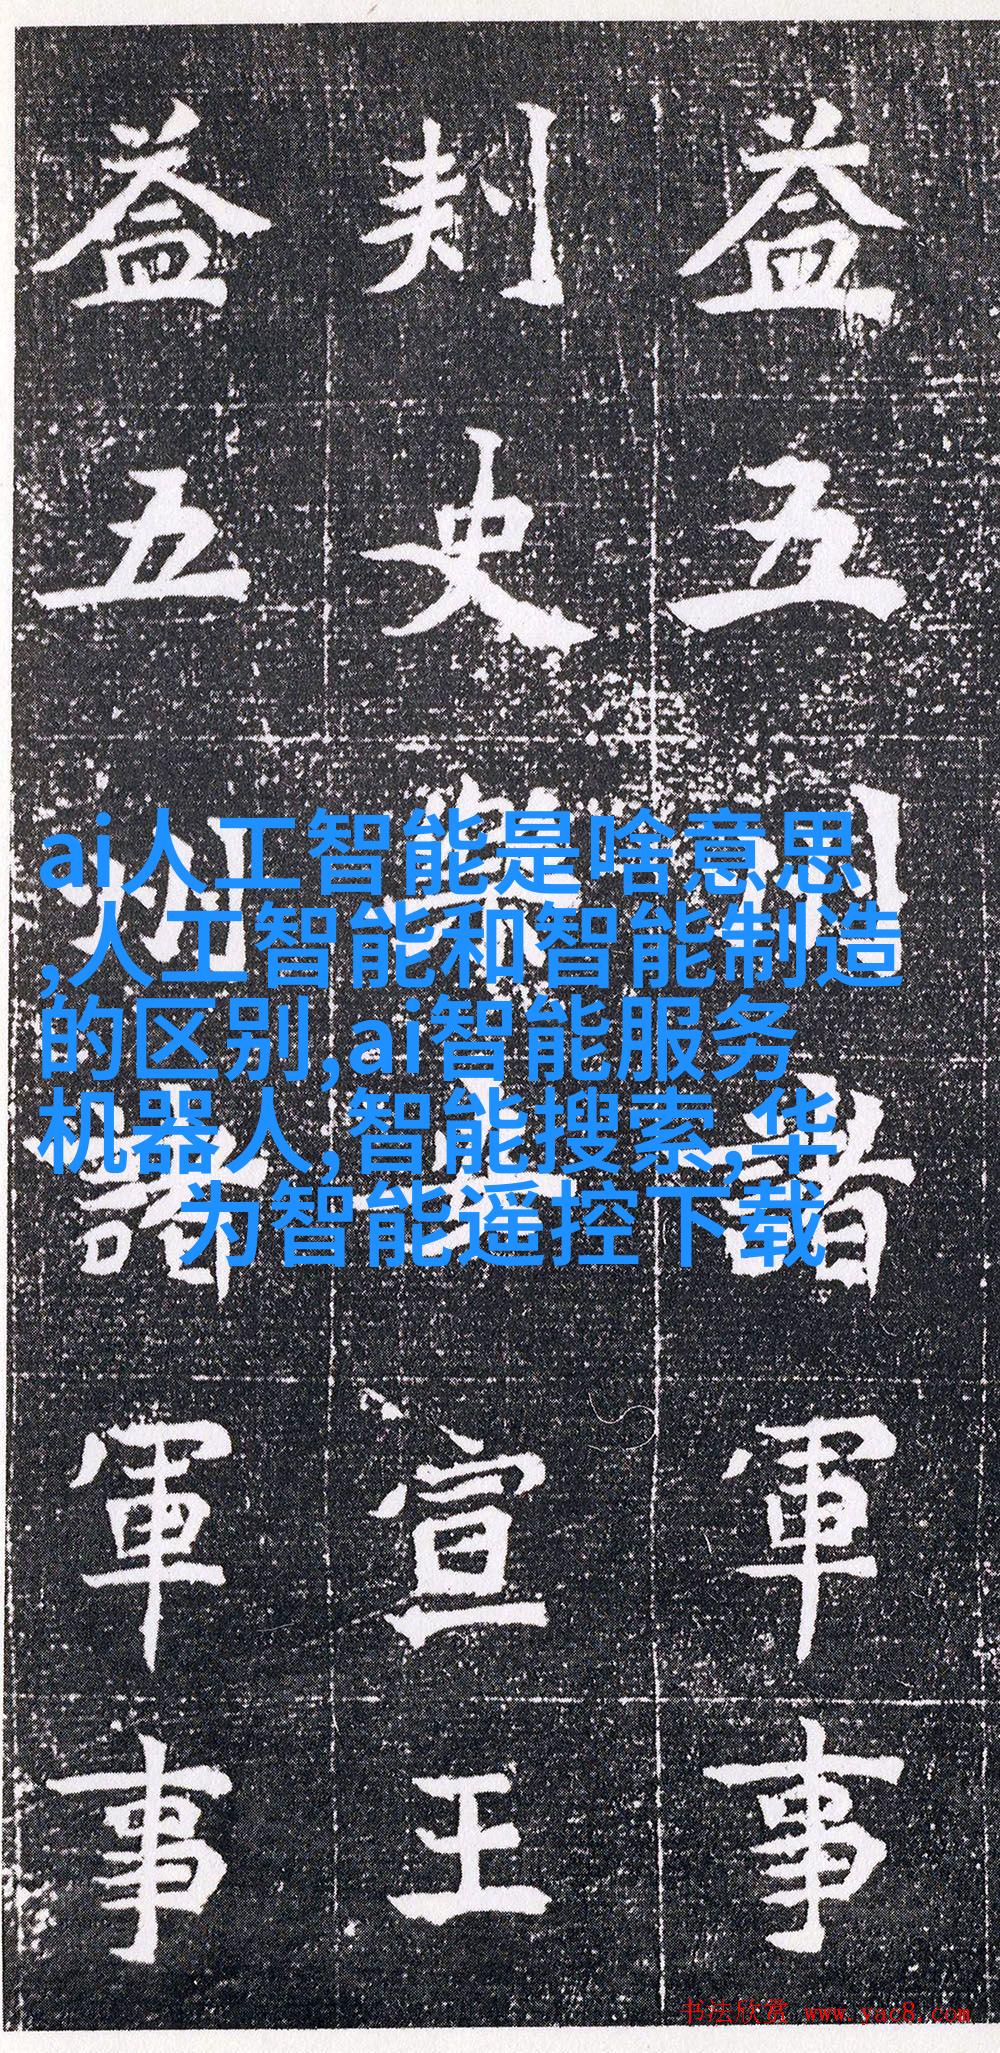 益五州諸軍事
刾史宣王
益五州諸軍事
ai人工智能是啥意思
,人工智能和智能制造
的区别,ai智能服务
机器人,智能搜索,华
为智能遥控下载
书法欣赏 www.yac8.com